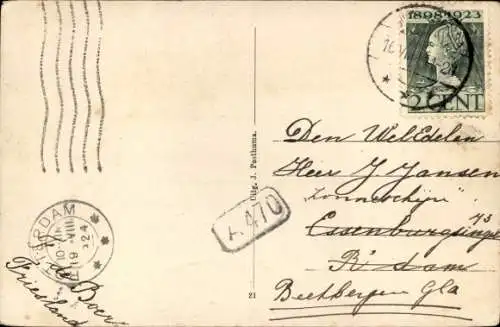 1898-1923
2 CENT
Den WelEdelen
Heer J. Jansen
Zonneschijn
Essenburgsingel 75
R'dam
Beekbergen Gld
Uitg. J. Posthuma.
A.470
21
ERDAM
19 VIII
24
de Boer
Friesland